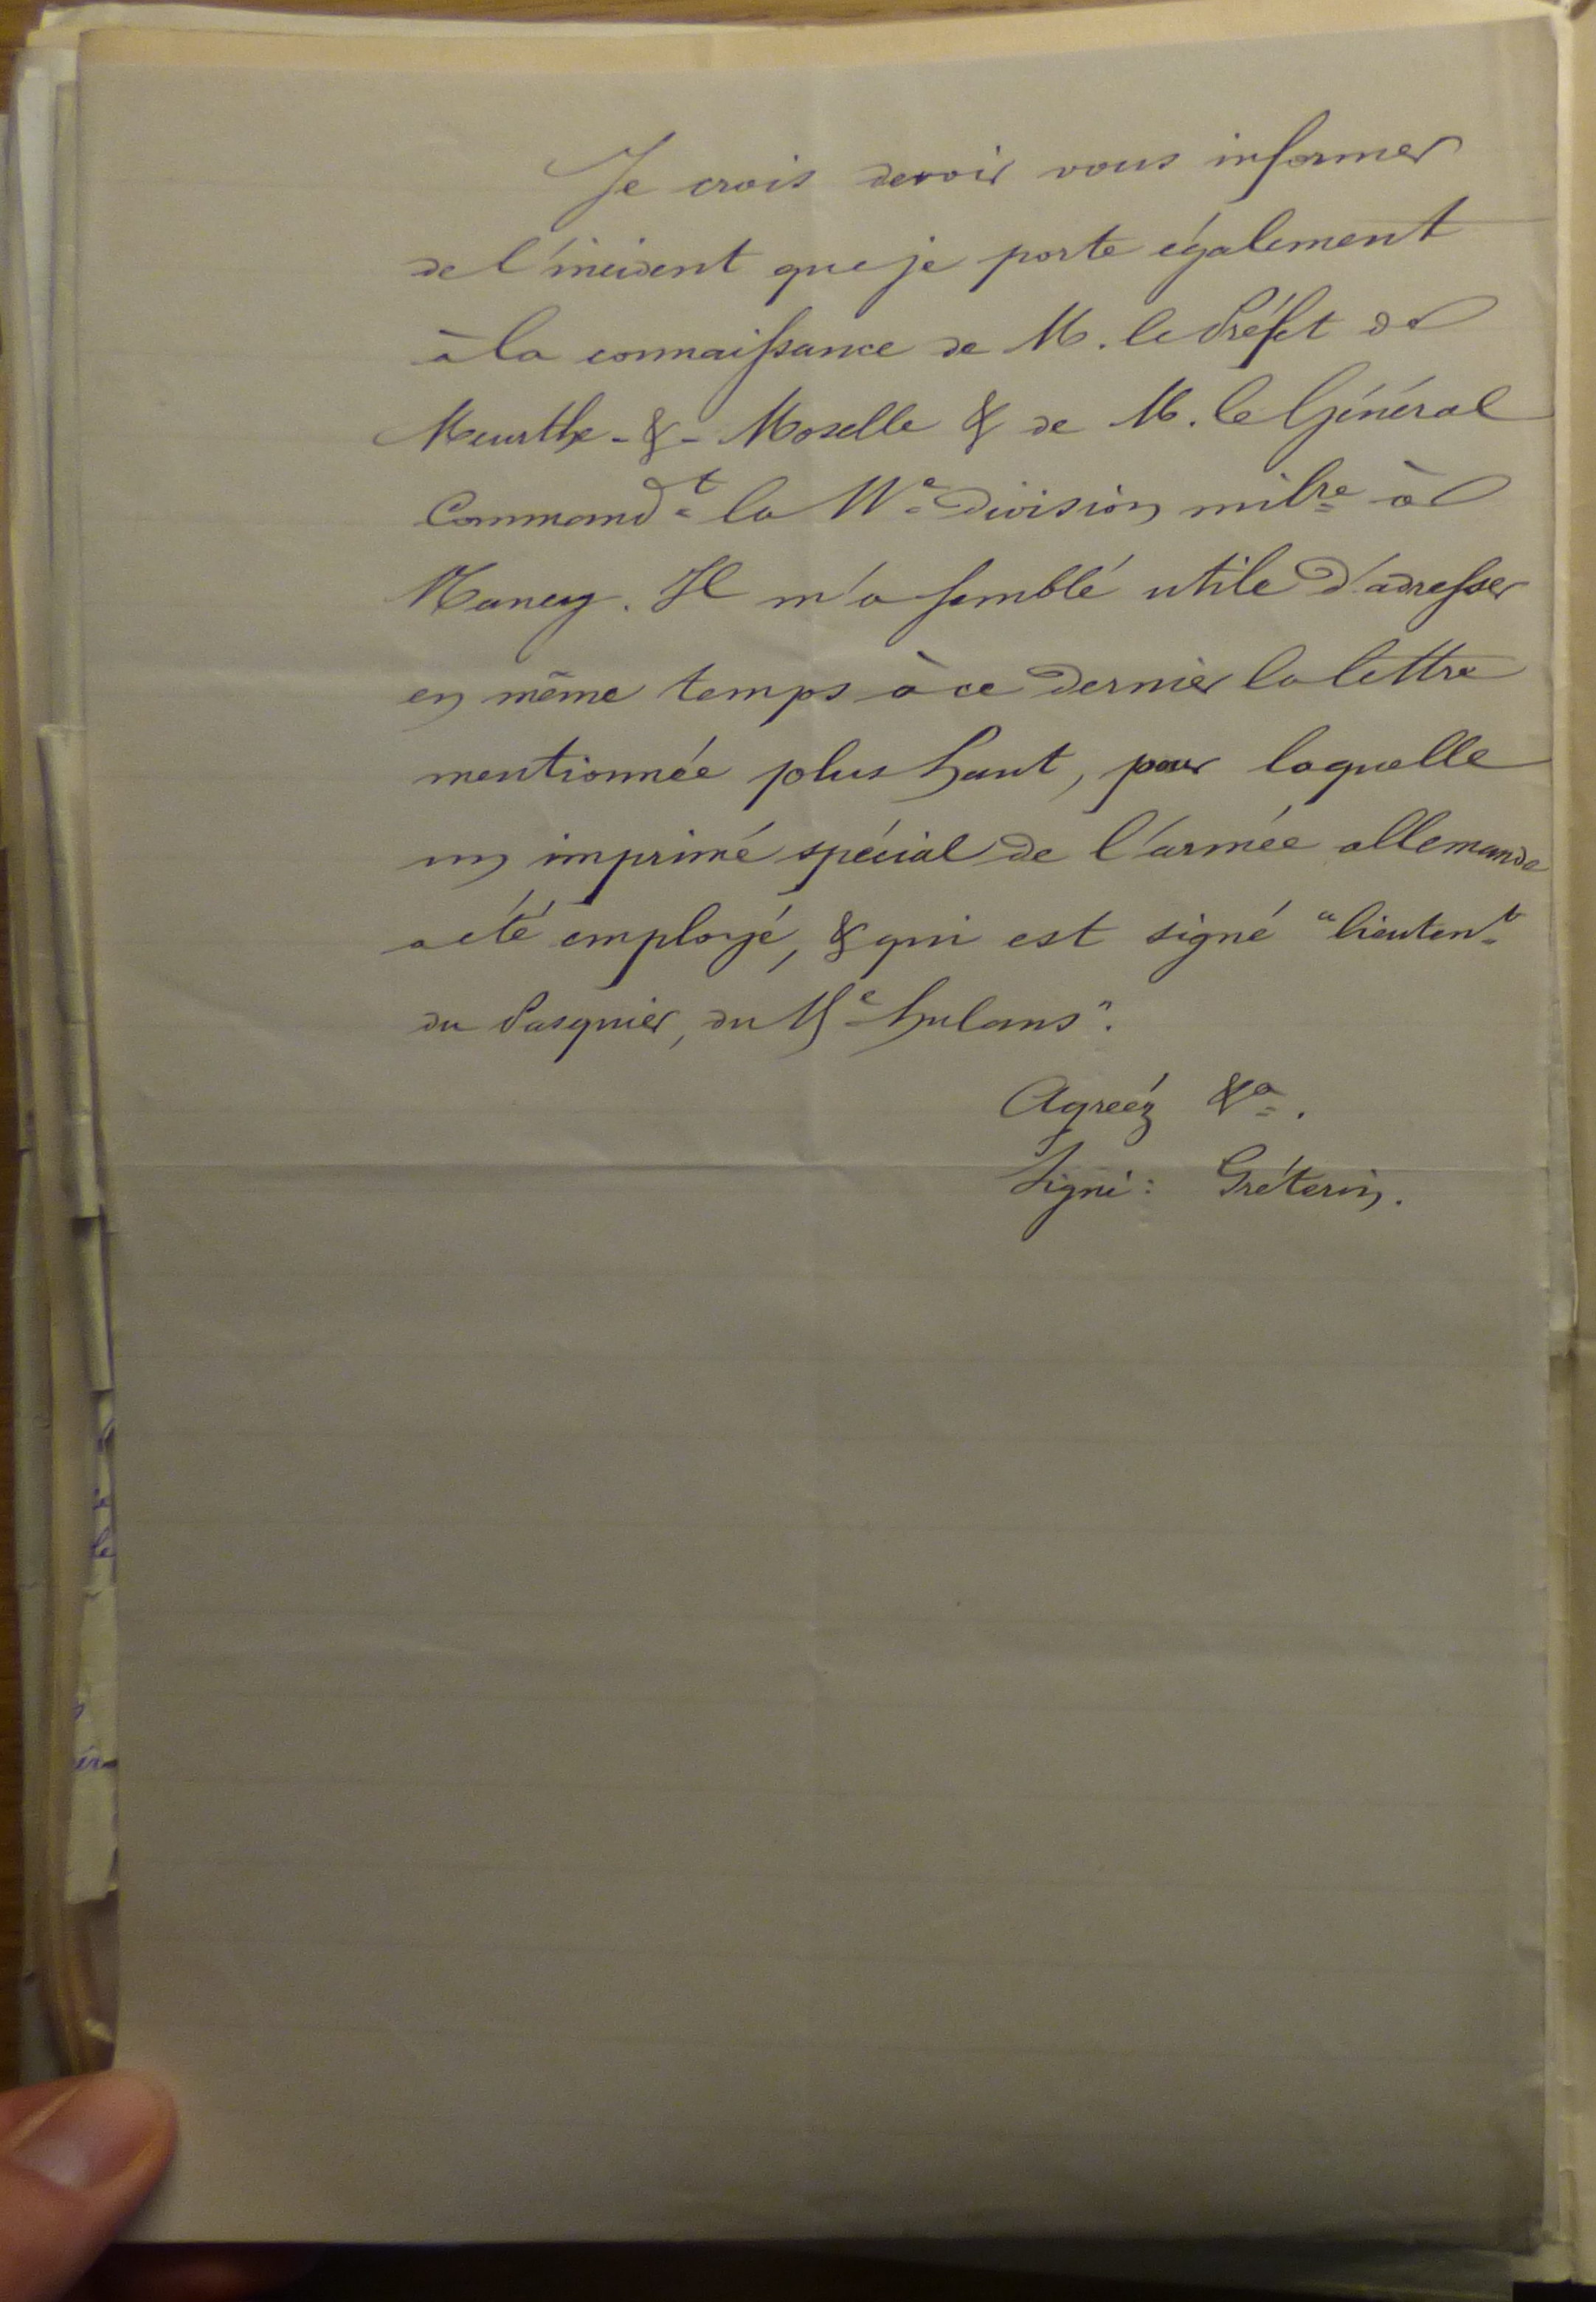 Je crois devoir vous informer
de l'incident que je porte également
à la connaissance de M. le Préfet de
Meurthe-&-Moselle & de M. le Général
Command.t la 11e Division milre à
Nancy. Il m'a semblé utile d'adresser
en même temps à ce dernier la lettre
mentionnée plus haut, pour laquelle
un imprimé spécial de l'armée allemande
a été employé, & qui est signé "lieuten.t
du Pasquier, du hulans".
Agréez &a.
Signé: Gréterin.